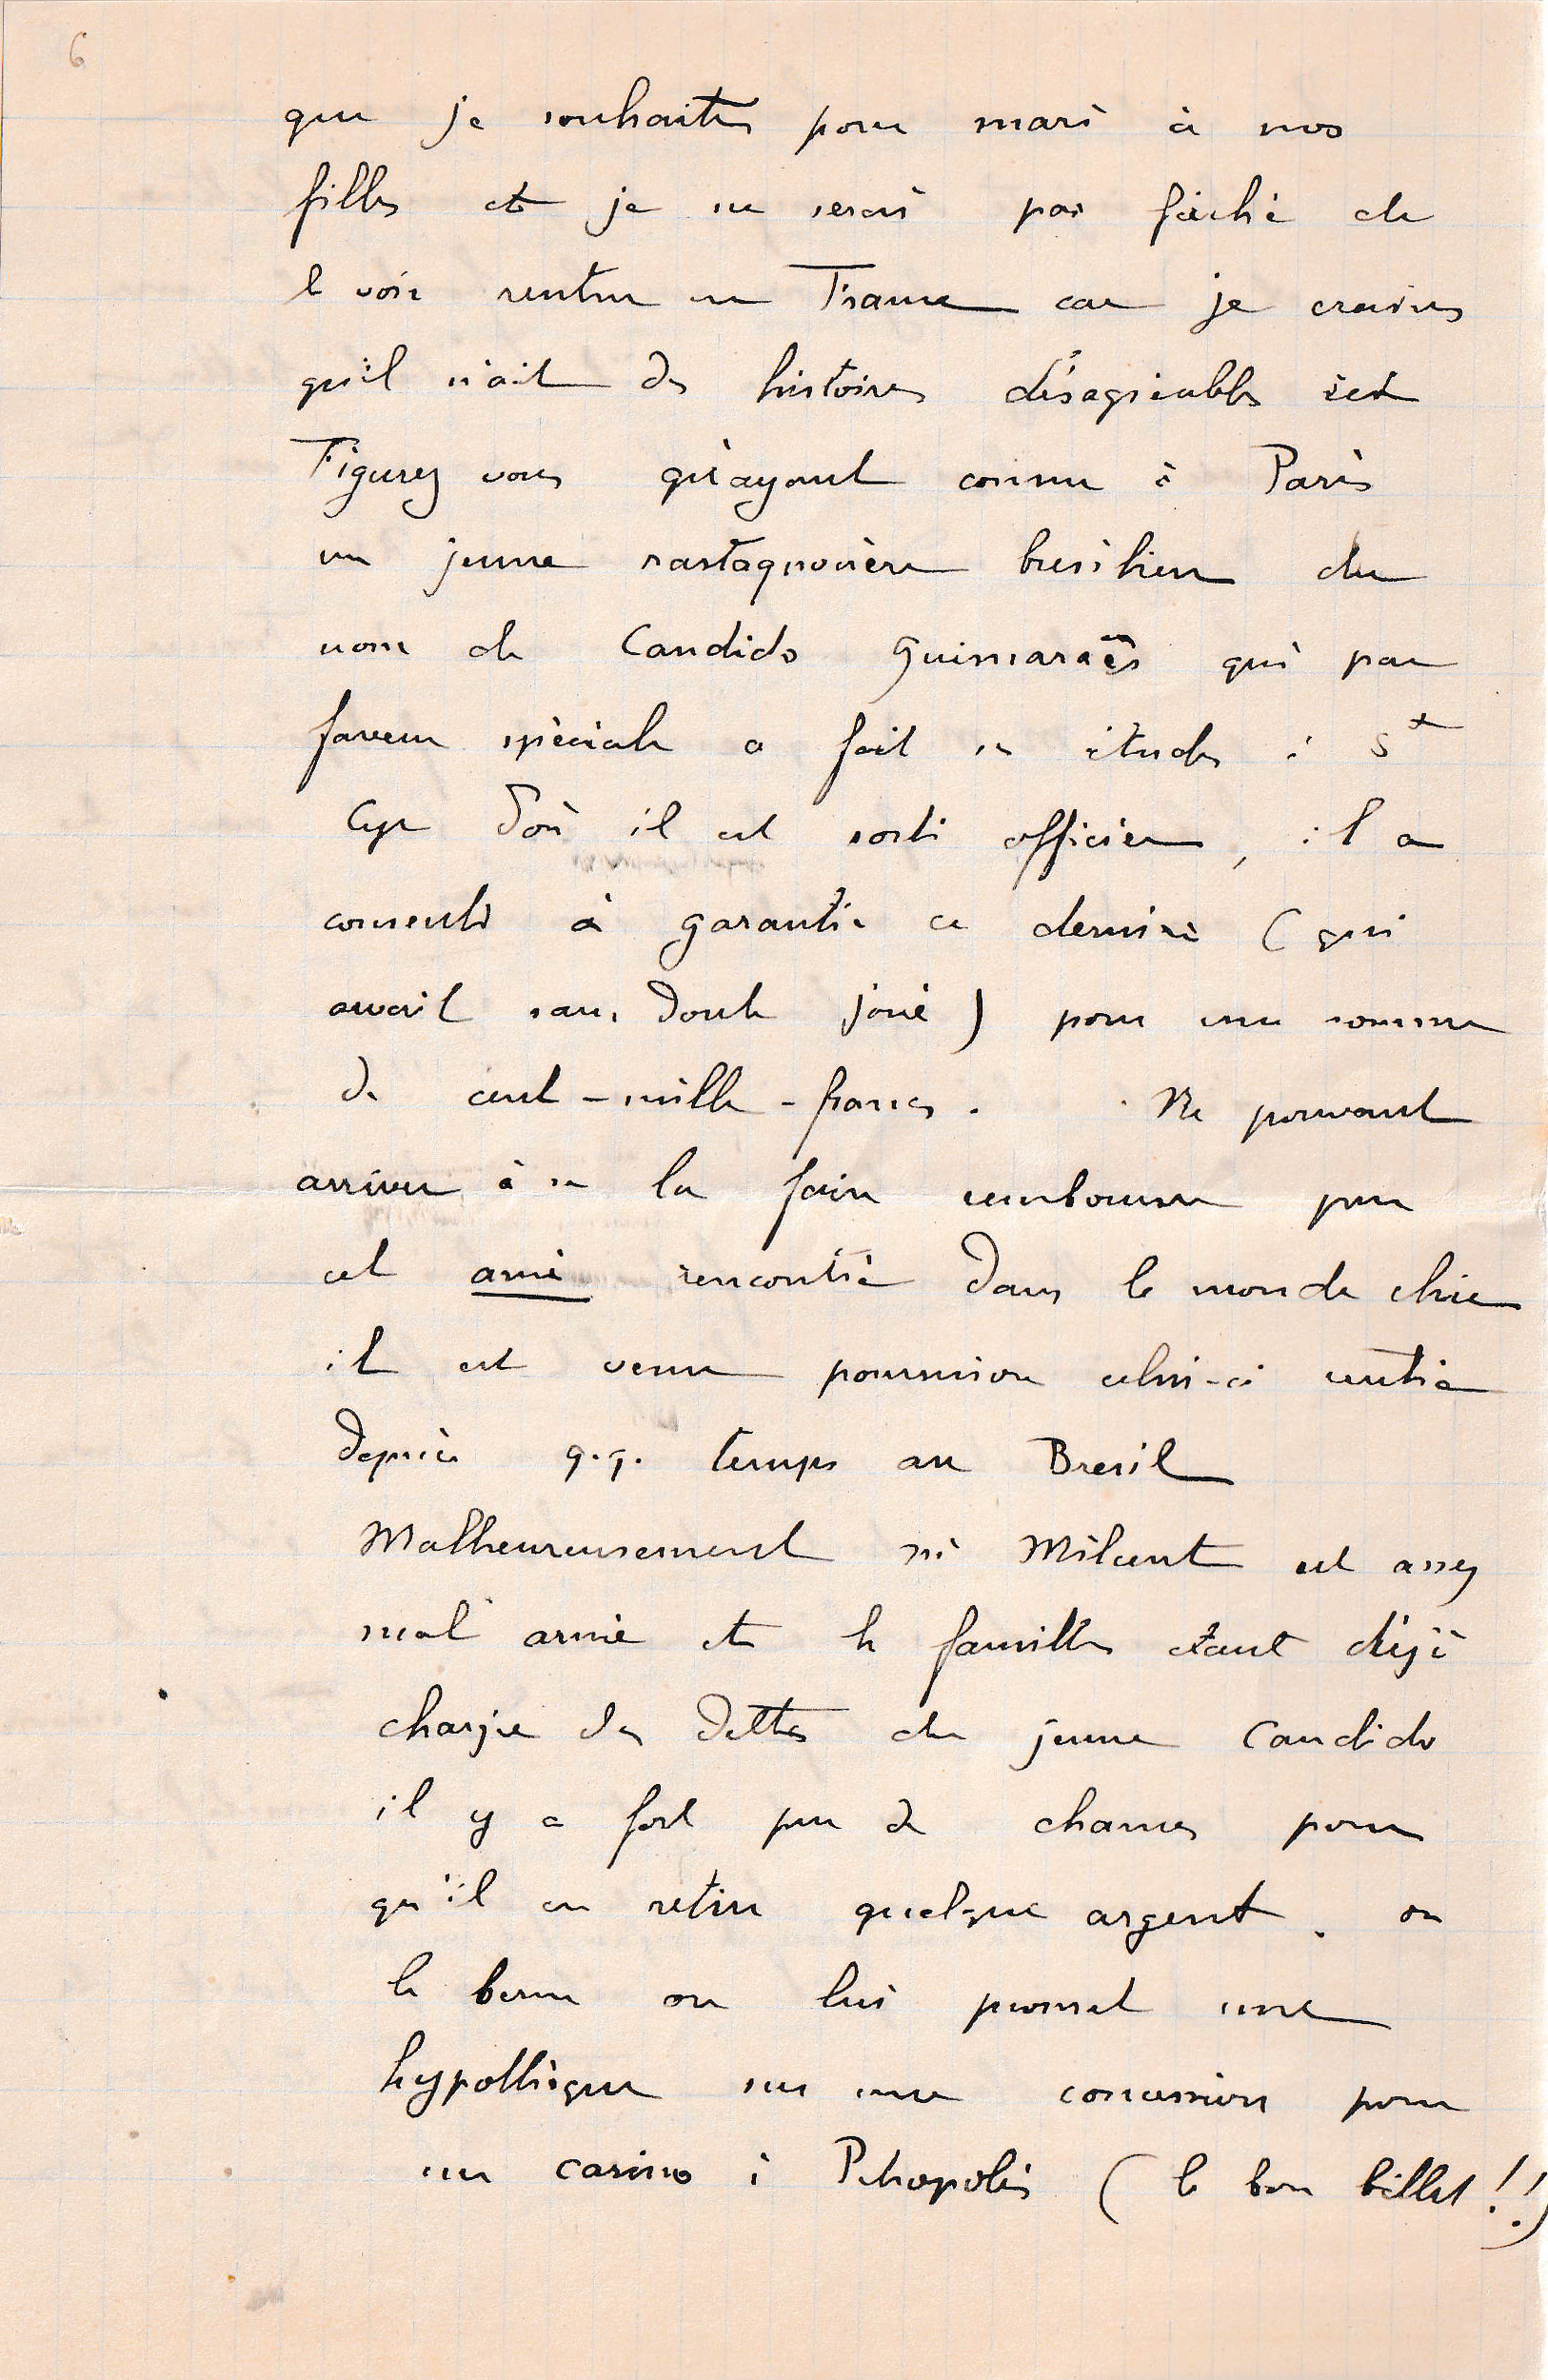 6
que je souhaite pour mari à nos
filles et je ne serais pas fâché de
le voir rentrer en France car je crains
qu'il n'ait des histoires désagréables ici
Figurez vous qu'ayant connu à Paris
un jeune rastaquouère brésilien du
nom de Candido Guimaraẽs qui par
faveur spéciale a fait ses études à St
Cyr d'où il est sorti officier, il a
consenti à garantir ce dernier (qui
avait sans doute joué) pour une somme
de cent-mille-francs. Ne pouvant
arriver à se la faire rembourser par
cet ami rencontré dans le monde chic
il est venu poursuivre celui-ci rentré
depuis q.q. temps au Brésil
Malheureusement Milcent est assez
mal armé et la famille étant déjà
chargée des dettes du jeune Candido
il y a fort peu de chances pour
qu'il en retire quelque argent. on
le berne on lui promet une
hypothèque sur une concession pour
un casino à Petropolis (le bon billet!!)